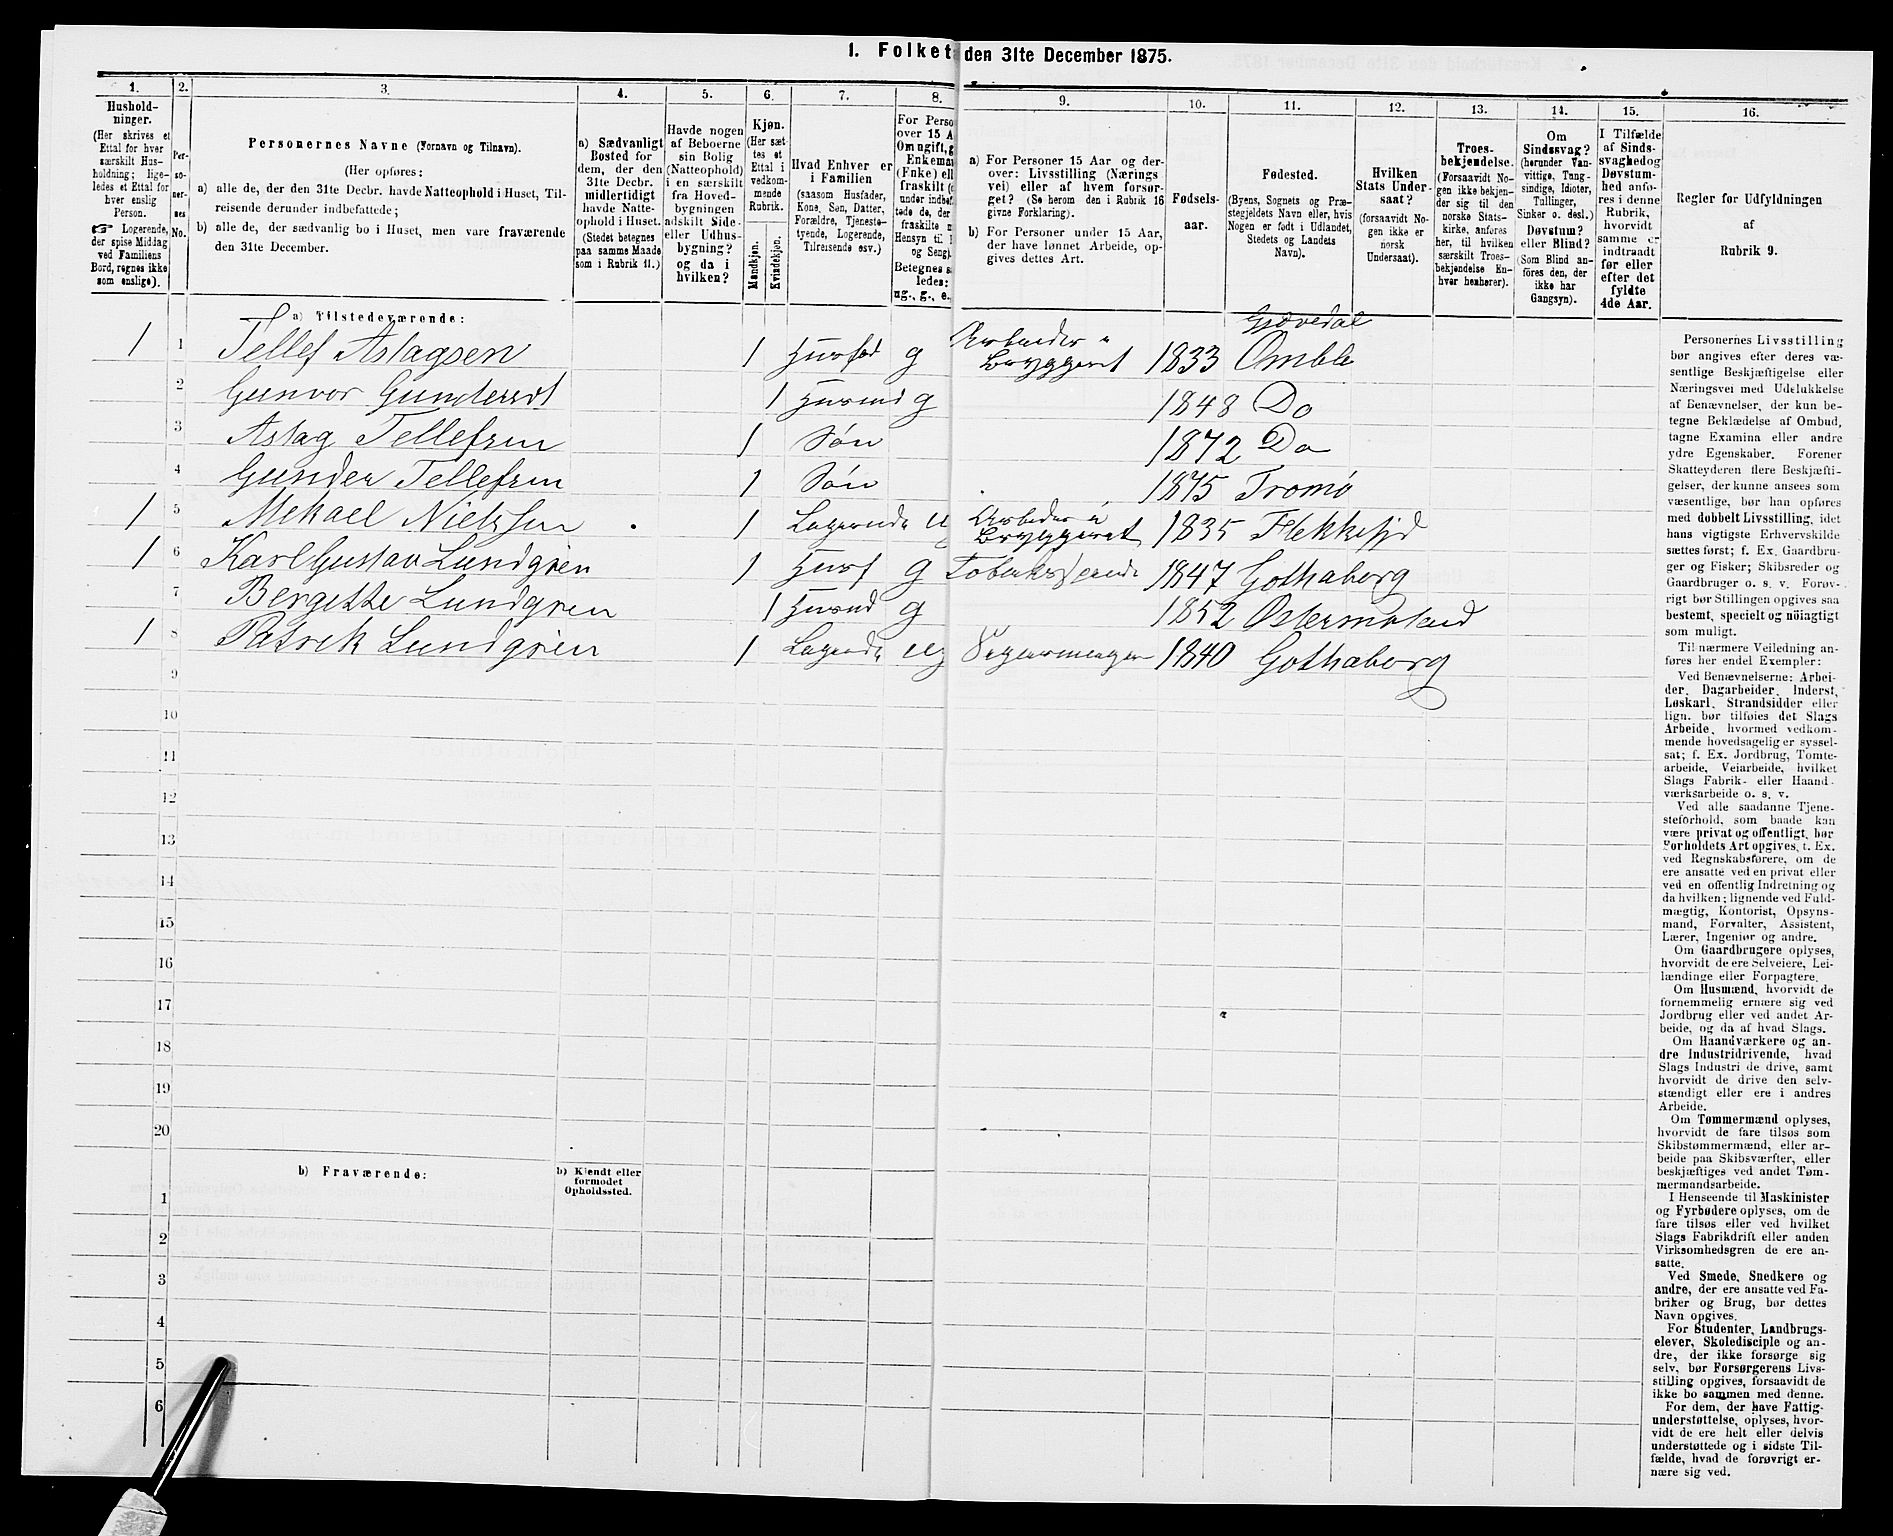 1. Folket den 31te December 1875.
1.
Hushold-
ninger.
(Her skrives et
Ettal for hver
særskilt Hus-
holdning; lige-
ledes et Ettal for
hver enslig
Person.
☞ Logerende,
der spise Middag
ved Familiens
Bord, regnes ikke
som enslige).
2.
Per-
so-
ner-
nes
No.
3.
Personernes Navne (Fornavn og Tilnavn).
(Her opføres:
a) alle de, der den 31te Decbr. havde Natteophold i Huset, Til-
reisende derunder indbefattede;
b) alle de, der sædvanlig bo i Huset, men vare fraværende
den 31te December.
4.
a) Sædvanligt
Bosted for
dem, der den
31te Decbr.
midlertidigt
havde Natte-
ophold i Huset.
(Stedet betegnes
paa samme Maade
som i Rubrik 11.)
5.
Havde nogen
af Beboerne
sin Bolig
(Natteophold)
i en særskilt
fra Hoved-
bygningen
adskilt Side-
eller Udhus-
bygning?
og da i
hvilken?
6.
Kjøn.
(Her sæt-
tes et
Ettal i
vedkom-
mende
Rubrik.
Mandkjøn.
Kvindekjøn.
7.
Hvad Enhver er
i Familien
(saasom Husfader,
Kone, Søn, Datter,
Forældre, Tjeneste-
tyende, Logerende,
Tilreisende osv.)
8.
For Perso
over 15 A
Om ugift, g
Enkema
(Enke) ell
fraskilt (
under indbef
tede de, der
fraskilte m
Hensyn til
og Seng).
Betegnes s
ledes:
ug., g., e.
9.
a) For Personer 15 Aar og der-
over: Livsstilling (Nærings
vei) eller af hvem forsør-
get? (Se herom den i Rubrik 16
givne Forklaring).
b) For Personer under 15 Aar,
der have lønnet Arbeide, op-
gives dettes Art.
10.
Fødsels-
aar.
11.
Fødested.
(Byens, Sognets og Præ-
stegjeldets Navn eller, hvis
Nogen er født i Udlandet,
Stedets og Landets
Navn).
12.
Hvilken
Stats Under-
saat?
(forsaavidt No-
gen ikke er
norsk
Undersaat).
13.
Troes-
bekjendelse.
(Forsaavidt No-
gen ikke bekjen-
der sig til den
norske Stats-
kirke, anføres
her, til hvilken
særskilt Troes-
bekjendelse En-
hver henhører).
14.
Om
Sindssvag?
(herunder Van-
vittige, Tung-
sindige, Idioter,
Tullinger,
Sinker o. desl.)
Døvstum?
eller Blind?
(Som Blind an-
føres den, der
ikke har
Gangsyn).
15.
I Tilfælde
af Sinds-
svaghed og
Døvstum-
hed anfø-
res i denne
Rubrik,
hvorvidt
samme er
indtraadt
før eller
efter det
fyldte
4de Aar.
16.
Regler for Udfyldningen
af
Rubrik 9.
a) Tilstedeværende:
Gjøvedal
1 1 Tellef Aslagsen 1 Husfad g Arbeider i Bryggeret 1833 Omble
2 Gunvor Gundersdt 1 Husmd g 1848 Do
3 Aslag Tellefsen 1 Søn 1872 Do
4 Gunder Tellefsen 1 Søn 1875 Tromø
1 5 Mekael Nielsen 1 Logerende ug Arbeder i Bryggeret 1835 Flekkefjd
1 6 Karl Gustav Lundgren 1 Husf g 1847 Gothaborg
7 Bergette Lundgren 1 Husmd g 1852
1 8 Patrik Lundgren 1 Logende ug 1840 Gothaborg
9
10
11
12
13
14
15
16
17
18
19
20
b) Fraværende:
b) Kjendt eller
formodet
Opholdssted.
1
2
3
4
5
6
Personernes Livsstilling
bør angives efter deres væ-
sentlige Beskjæftigelse eller
Næringsvei med Udelukkelse
af Benævnelser, der kun be-
tegne Beklædelse af Ombud,
tagne Examina eller andre
ydre Egenskaber. Forener
Skatteyderen flere Beskjæfti-
gelser, der kunne ansees som
væsentlige, bør han opføres
med dobbelt Livsstilling, idet
hans vigtigste Erhvervskilde
sættes først; f. Ex. Gaardbru-
ger og Fisker; Skibsreder og
Gaardbruger o. s. v. Forøv-
rigt bør Stillingen opgives saa
bestemt, specielt og nöiagtigt
som muligt.
Til nærmere Veiledning an-
føres her endel Exempler:
Ved Benævnelserne: Arbei-
der, Dagarbeider, Inderst,
Løskarl, Strandsidder eller
lign. bør tilføies det Slags
Arbeide, hvormed vedkom-
mende hovedsagelig er syssel-
sat; f. Ex. Jordbrug, Tomte-
arbeide, Veiarbeide, hvilket
Slags Fabrik- eller Haand-
værksarbeide o. s. v.
Ved alle saadanne Tjene-
steforhold, som baade kan
være privat og offentligt, bør
Forholdets Art opgives, t. Ex.
ved Regnskabsførere, om de
ere ansatte ved en privat eller
ved en offentlig Indretning og
da hvilken; lignende ved Fuld-
mægtig, Kontorist, Opsyns-
mand, Forvalter, Assistent,
Lærer, Ingeniør og andre.
Om Gaardbrugere oplyses,
hvorvidt de ere Selveiere, Lei-
lændinge eller Forpagtere.
Om Husmænd, hvorvidt de
fornemmelig ernære sig ved
Jordbrug eller ved andet Ar-
beide, og da af hvad Slags.
Om Haandværkere og an-
dre Industridrivende, hvad
Slags Industri de drive, samt
hvorvidt de drive den selv-
stændigt eller ere i andres
Arbeide.
Om Tømmermænd oplyses,
hvorvidt de fare tilsøs som
Skibstømmermænd, eller ar-
beide paa Skibsværfter, eller
beskjæftiges ved andet Tøm-
mermandsarbeide.
I Henseende til Maskinister
og Fyrbødere oplyses, om de
fare tilsøs eller ved hvilket
Slags Fabrikdrift eller anden
Virksomhedsgren de ere an-
satte.
Ved Smede, Snedkere og
andre, der ere ansatte ved Fa-
briker og Brug, bør dettes
Navn opgives.
For Studenter, Landbrugs-
elever, Skoledisciple og an-
dre, der ikke forsørge sig
selv, bør Forsørgerens Livs-
stilling opgives, forsaavidt de
ikke bo sammen med denne.
For dem, der have Fattig-
understøttelse, oplyses, hvor-
vidt de ere helt eller delvis
understøttede og i sidste Til-
fælde, hvad de forøvrigt er-
nære sig ved.